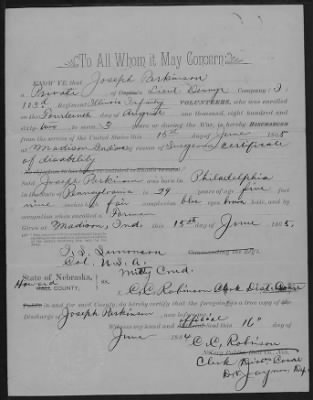 To All Whom it May Concern
KNOW YE that Joseph Parkinson
a Private of Captain's Lieut Company
103d Regiment Illinois Infantry VOLUNTEERS, who was enrolled
on the Fourteenth day of August one thousand, eight hundred and
sixty two to serve 3 years or during the War, is hereby DISCHARGED
from the service of the United States this 15th day of June 1865
at Madison Indiana by reason of Surgeons certificate
of disability
Said Joseph Parkinson was born in Philadelphia
in the State of Pennsylvania is 29 years of age five feet
nine inches high fair complexion blue eyes hair, and by
occupation when enrolled a Farmer
Given at Madison, Ind. this 15th day of June 1865,
Commanding the
Col. U.S.A.
State of Nebraska, ss.
Howard COUNTY,
C.C. Robinson Clerk Dist. Court
in and for said County, do hereby certify that the foregoing is a true copy of the
Discharge of Joseph Parkinson
Witness my hand and official seal this 16th day of
June 1884 C. C. Robinson
Clerk Dist. Court